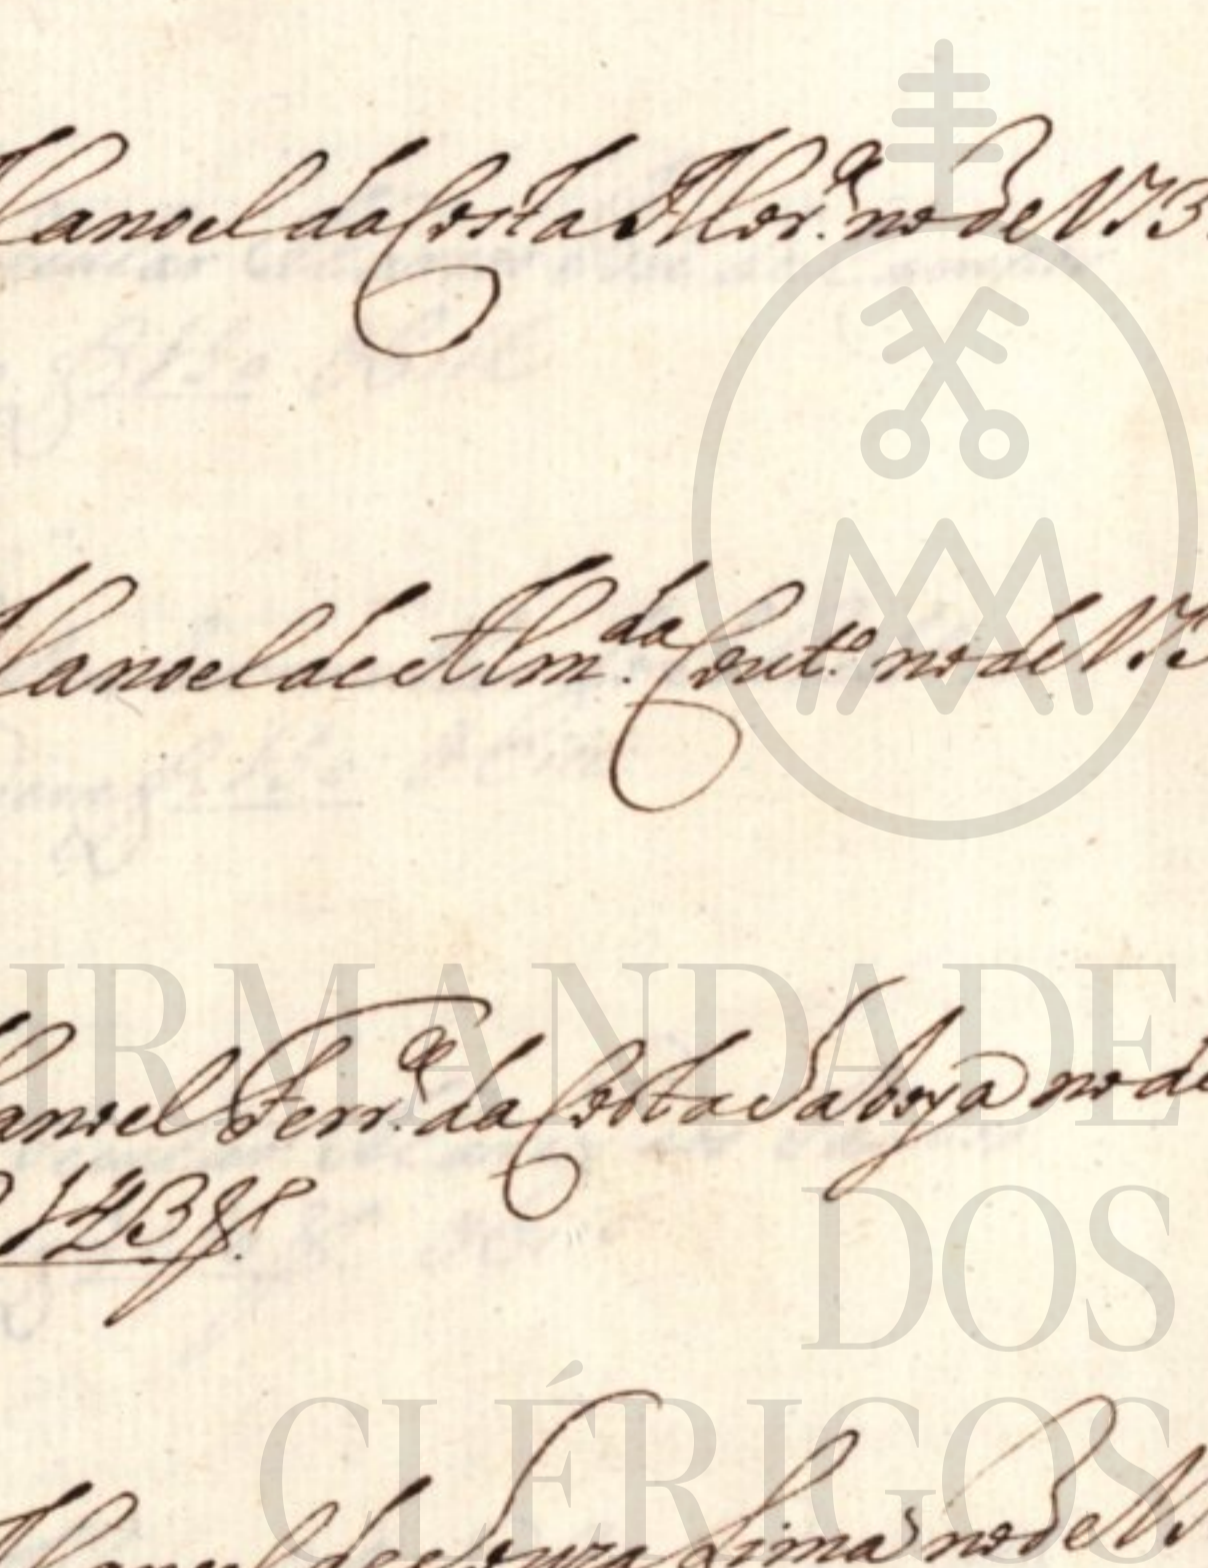 Manoel da Costa Mor.ª no de 173
Manoel de Alm.da Cout.º no de 173
Manoel Ferr.ª da Costa Saboya no de
1738
Manoel de Souza Lima no de 1
IRMANDADE
DOS
CLÉRIGOS